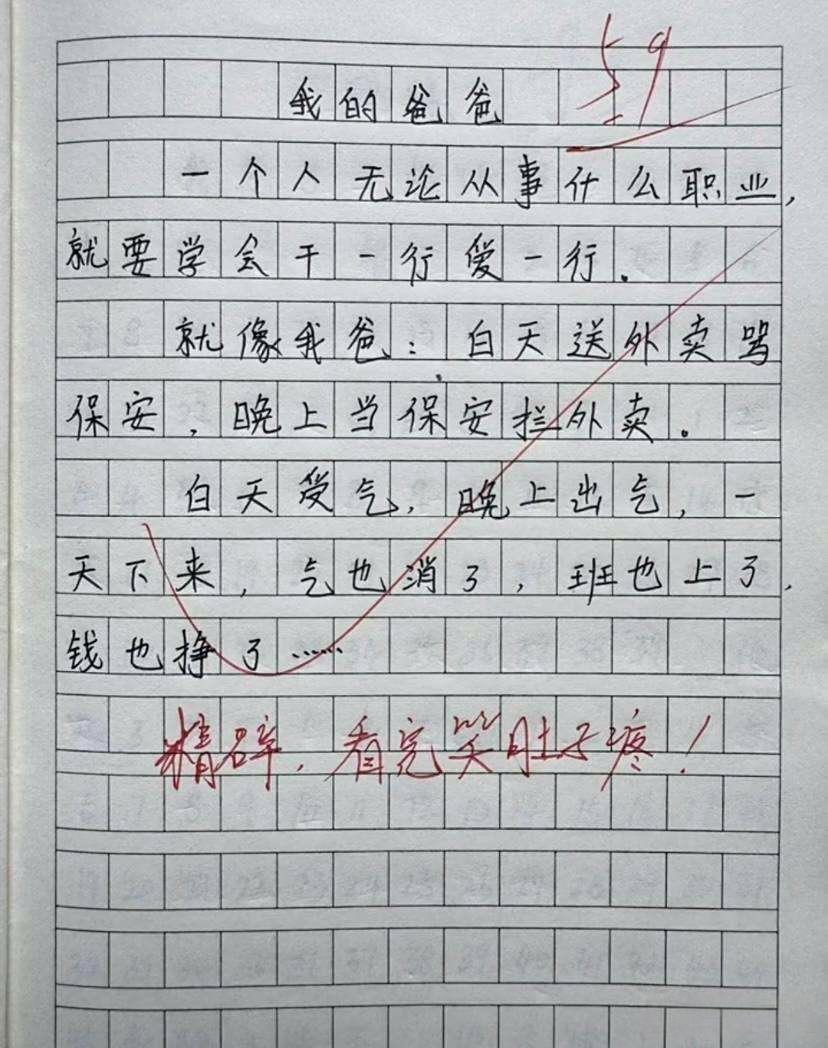 59
我的爸爸
一个人无论从事什么职业,
就要学会干一行爱一行.
就像我爸:白天送外卖骂
保安,晚上当保安拦外卖。
白天受气,晚上出气,一
天下来,气也消了,班也上了,
钱也挣了……
精辟,看完笑肚子疼!